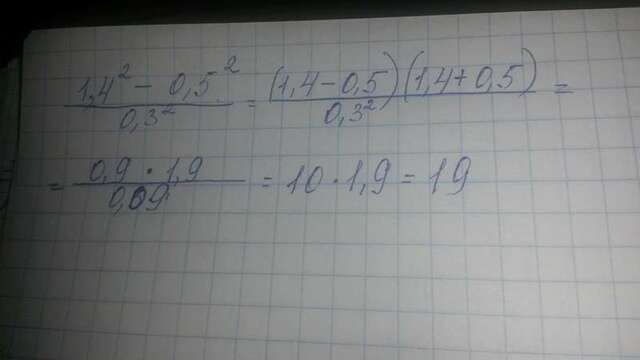 (1,4² - 0,5²) / 0,3² = ((1,4 - 0,5)(1,4 + 0,5)) / 0,3² =
= (0,9 · 1,9) / 0,09 = 10 · 1,9 = 19